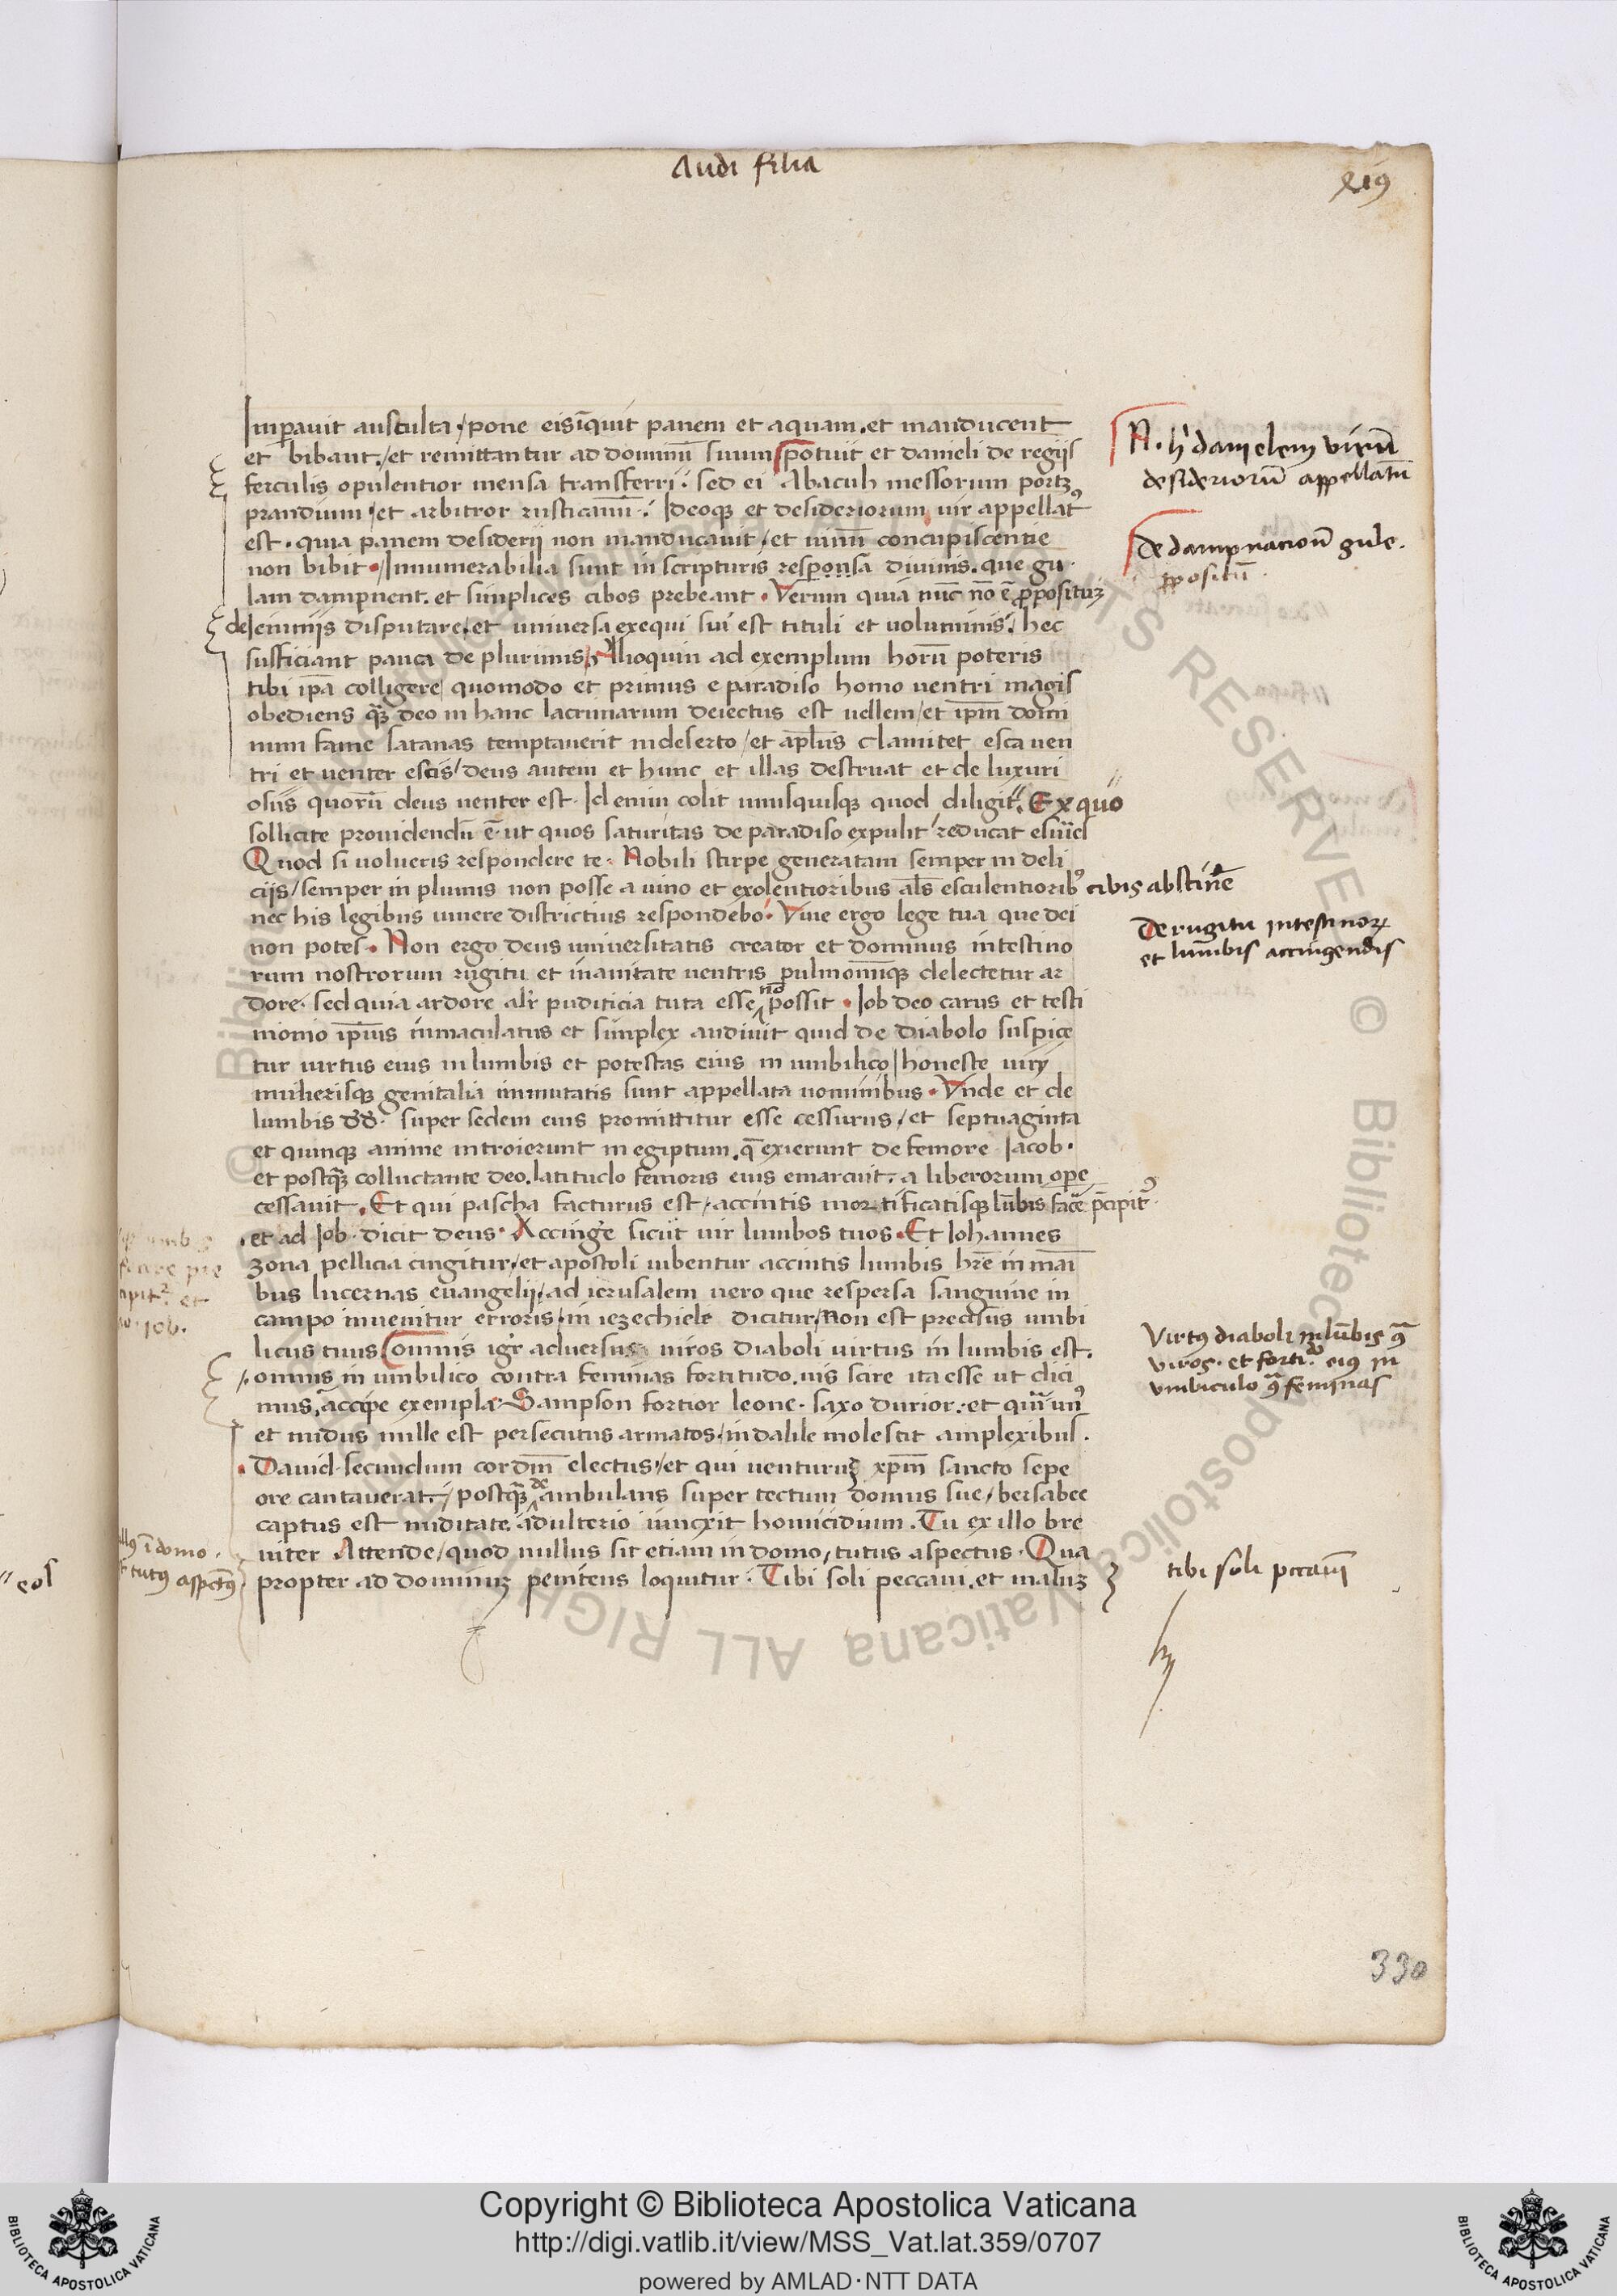 Audi filia
Imperauit ausculta / pone eis īquit panem et aquam . et manducent
et bibant . / et remittantur ad dominū suum potuit et danieli de regijs
ferculis opulentior mensa transferri . sed ei Abacuh messorum portꝫ
prandium / et arbitror rusticanū . Ideoqꝫ et desideriorum uir appellatꝰ
est . quia panem desiderij non manducauit / et uinū concupiscentie
non bibit . Innumerabilia sunt in scripturis responsa diuinis . que gu
lam dampnent . et simplices cibos prebeant . Verum quia nūc nō ē ꝓpositum
de Ieiunijs disputare . et uniuersa exequi sui est tituli et uoluminis . hec
sufficiant pauca de plurimis Alioquin ad exemplum horū poteris
tibi ip̄a colligere / quomodo et primus e paradiso homo uentri magis
obediens qꝫ deo in hanc lacrimarum deiectus est uellem / et ip̄m domi
num fame satanas temptauerit in deserto / et apl̄us clamitet esca uen
tri et uenter escis / deus autem et hunc et illas destruat et de luxuri
osijs quorū deus uenter est . Id enim colit unusquisqꝫ quod diligit . Ex quo
sollicite prouidendū ē . ut quos saturitas de paradiso expulit reducat esuries
Quod si uolueris respondere te . Nobili stirpe generatam semper in deli
cijs / semper in plumis non posse a uino et exolentioribus al̄s esculentioribꝰ cibis abstinē
nec his legibus uiuere districtius respondebo . Viue ergo lege tua que dei
non potes . Non ergo deus uniuersitatis creator et dominus intestino
rum nostrorum rugitu et inanitate uentris pulmonūqꝫ delectetur ar
dore . sed quia ardore alr̄ puditicia tuta esse nō possit . Iob deo carus et testi
monio ip̄ius inmaculatus et simplex audiuit quid de diabolo suspice
tur uirtus eius in lumbis et potestas eius in umbilico / honeste uiri
mulierisqꝫ genitalia inmutatis sunt appellata nominibus . Vnde et de
lumbis dd̄ . super sedem eius promittitur esse cessurus . / et septuaginta
et quinqꝫ anime introierunt in egiptum . q̄ exierunt de femore Iacob .
et postqꝫ colluctante deo . latitudo femoris eius emarcuit . a liberorum oꝑe
cessauit . Et qui pascha facturus est / accintis mortificatisqꝫ lūbis facē p̄cipitꝰ .
et ad Iob . dicit deus . Accinge sicut uir lumbos tuos . Et Iohannes
zona pellicia cingitur / et apostoli iubentur accintis lumbis hr̄e in mani
bus lucernas euangelij / ad ierusalem uero que respersa sanguine in
campo inuenitur erroris / in iezechiele dicitur / non est precisus umbi
licus tuus omnis igr̄ aduersus uiros diaboli uirtus in lumbis est .
omnis in umbilico contra feminas fortitudo . uis scire ita esse ut dici
mus accipe exempla . Sampson fortior leone . saxo durior . et qui un
et nudus mille est persecutus armatos . in dalile molescit amplexibus .
Dauid secundum cor dm̄ electus / et qui uenturū xp̄m sancto sepe
ore cantauerat . / postqꝫ deambulans super tectum domus sue / bersabee
captus est nuditate adulterio iuncxit homicidium . Tu ex illo bre
uiter Attende / quod nullus sit etiam in domo / tutus aspectus . Qua
propter ad dominuꝫ penitens loquitur . Tibi soli peccaui . et maluꝫ
danielem virū
desideriorū appellatū
De dampnacionū gule .
ꝓpositū
De rugitu intestinorꝝ
et lūmbis accingendis
Virtꝰ diaboli in lūbis
viros . et forti . eiꝰ in
vmbiculo feminas
tibi soli pccaui
pit et
iob .
llꝰ ī domo .
tutꝰ aspectꝰ
eos
330
Copyright © Biblioteca Apostolica Vaticana
http://digi.vatlib.it/view/MSS_Vat.lat.359/0707
powered by AMLAD·NTT DATA
BIBLIOTECA APOSTOLICA VATICANA
BIBLIOTECA APOSTOLICA VATICANA
© Biblioteca Apostolica Vaticana ALL RIGHTS RESERVED